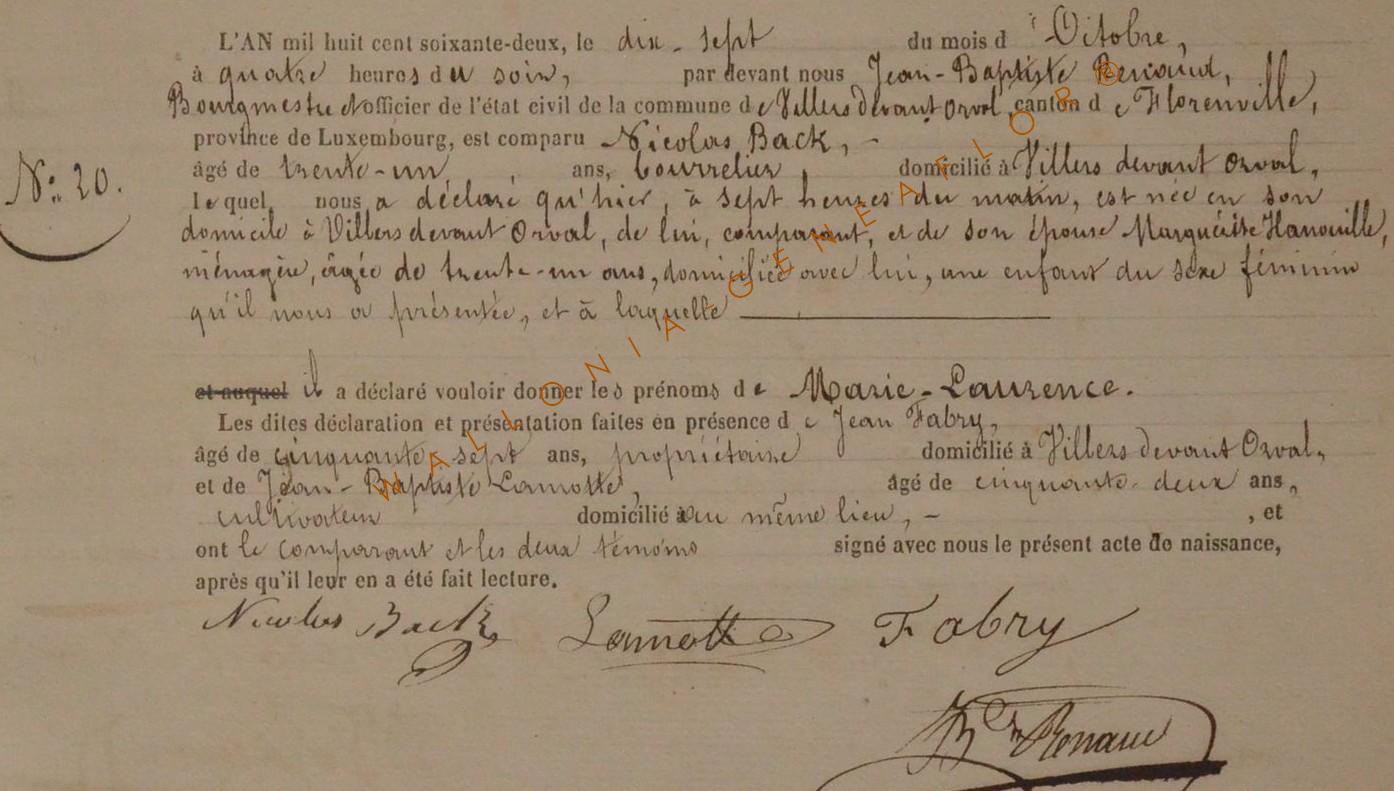 L'AN mil huit cent soixante-deux, le dix-sept du mois d'Octobre,
à quatre heures du soir, par devant nous Jean-Baptiste Renaud,
Bourgmestre et officier de l'état civil de la commune de Villers devant Orval, canton de Florenville,
province de Luxembourg, est comparu Nicolas Back, -
âgé de trente-un, ans, bourrelier, domicilié à Villers devant Orval,
N° 20.
lequel nous a déclaré qu'hier, à sept heures du matin, est née en son
domicile à Villers devant Orval, de lui, comparant, et de son épouse Marguerite Hanouille,
ménagère, âgée de trente-un ans, domiciliée avec lui, une enfant du sexe féminin
qu'il nous a présentée, et à laquelle
et auquel il a déclaré vouloir donner les prénoms de Marie-Laurence.
Les dites déclaration et présentation faites en présence de Jean Fabry,
âgé de cinquante-sept ans, propriétaire domicilié à Villers devant Orval,
et de Jean-Baptiste Lamotte, âgé de cinquante-deux ans,
cultivateur domicilié au même lieu, - , et
ont le comparant et les deux témoins signé avec nous le présent acte de naissance,
après qu'il leur en a été fait lecture.
Nicolas Back Lamotte Fabry
JBte Renaud
WALLONIA GENEALO